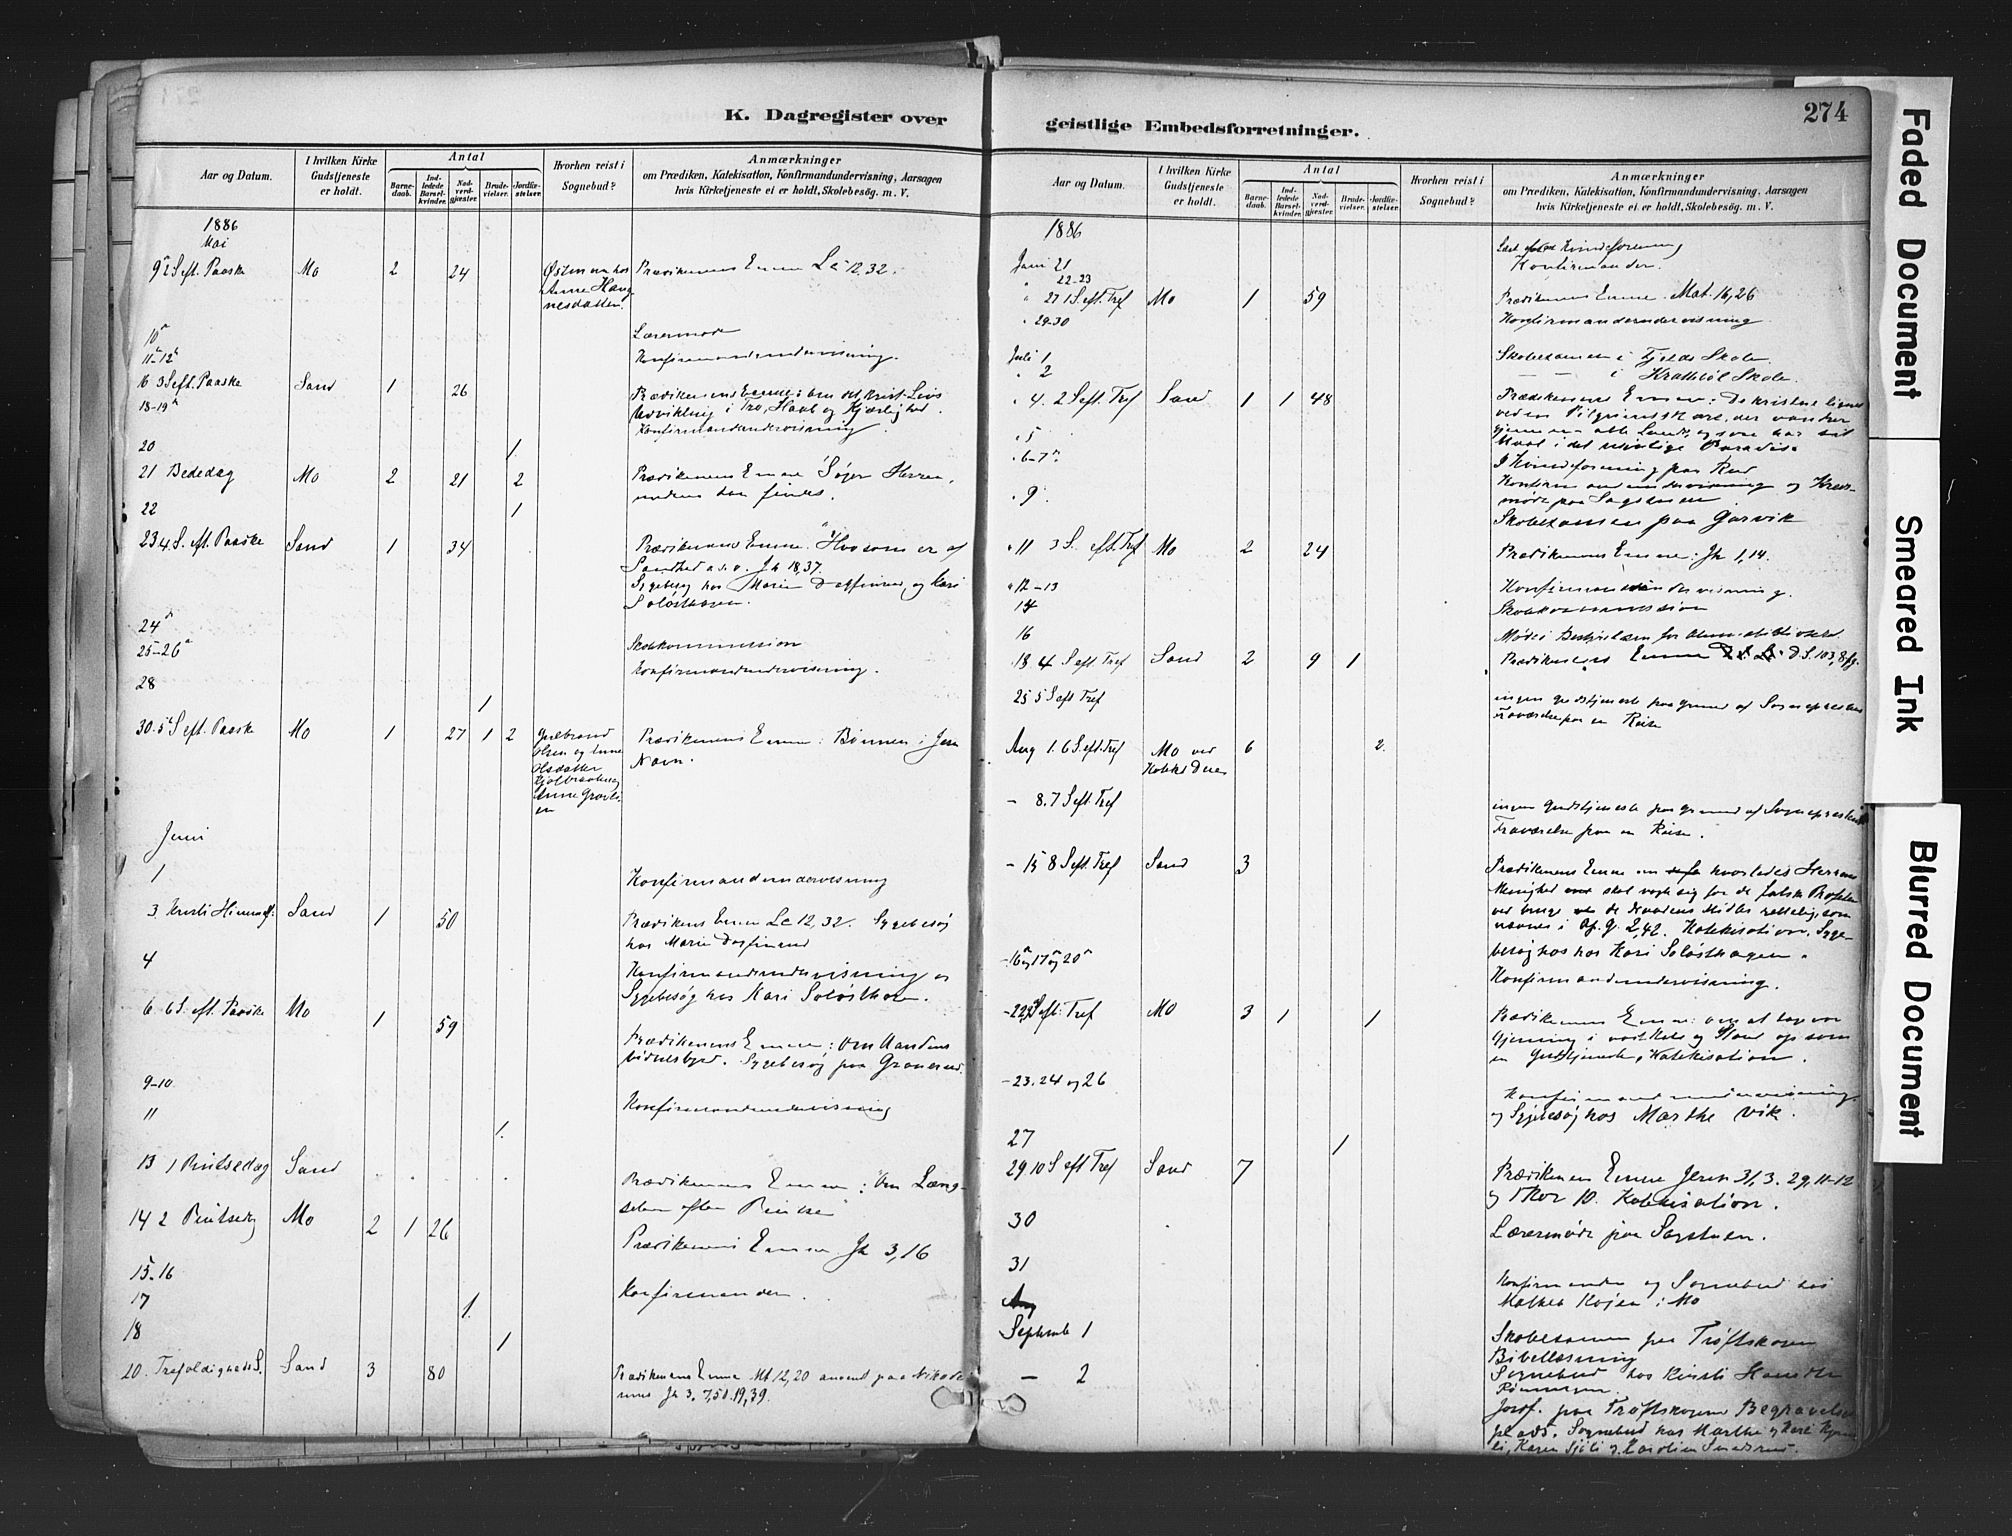 K. Dagregister over
Aar og Datum.
I hvilken Kirke Gudstjeneste er holdt.
Antal
Barnedaab.
Indledede Barselkvinder.
Nadverdgjæster.
Brudevielser.
Jordfæstelser.
Hvorhen reist i Sognebud?
Anmærkninger
om Prædiken, Katekisation, Konfirmandundervisning, Aarsagen
hvis Kirketjeneste ei er holdt, Skolebesøg. m. V.
1886
Mai
9 2 S eft. Paaske Mo 2 24 Prædikenens Emne Lc 12,32.
Anne
10
Lærermøde
11-12 Konfirmandundervisning.
16 3 S eft. Paaske Sand 1 26 Prædikenens Emne: om det krist. Livs
Udvikling i Tro, Haab og Kjærlighed.
18-19 Konfirmandundervisning.
20 1
21 Bededag Mo 2 21 2 Prædikenens Emne Søger Herren,
medens han findes.
22 1
23 4. S. eft. Paaske Sand 1 34 Prædikenens Emne. Hvo som er af
Sandhed o.s.v. Jh 18,37.
Sygebesøg hos Marie og Kari
24
Skolekommission
25-26 Konfirmandundervisning.
28 1
30. 5 S eft. Paaske Mo 1 27 1 2 Prædikenens Emne: Bønnen i Jesu
Navn.
Olsen og Anne
Olsdatter
Anne
Juni
1 Konfirmandundervisning
3. Kristi Himmelf: Sand 1 50 Prædikens Emne Lc 12,32. Sygebesøg
hos Marie
4 Konfirmandundervisning og
Sygebesøg hos Kari
6. 6 S. eft. Paaske Mo 1 59
Prædikenens Emne: Om Aandens
Vidnesbyrd. Sygebesøg paa
9-10 Konfirmandundervisning
11 1.
13 1 Pintsedag Sand
Prædikenens Emne: Om Læng-
selen efter Pintse
14 2 Pintsedg Mo 2 1 26
Prædikenens Emne Jh 3,16
15-16 Konfirmander.
17 1.
18 1
20. Trefoldigheds S. Sand 3 80 Prædikenens Emne Mt 12,20 anvendt paa Nikode-
mus Jh 3. 7,50. 19,39.
geistlige Embedsforretninger.
274
Aar og Datum.
I hvilken Kirke Gudstjeneste er holdt.
Antal
Barnedaab.
Indledede Barselkvinder.
Nadverdgjæster.
Brudevielser.
Jordfæstelser.
Hvorhen reist i Sognebud?
Anmærkninger
om Prædiken, Katekisation, Konfirmandundervisning, Aarsagen
hvis Kirketjeneste ei er holdt, Skolebesøg. m. V.
1886
Juni 21 Kvindeforening
22-23 Konfirmander.
27 1 S eft. Tref Mo 1 59 Prædikenens Emne. Mat. 16,26
29-30 Konfirmandundervisning
Juli 1 Skoleexamen i Fjelds Skole.
2 i Skole.
4. 2 S eft. Tref Sand 1 1 48 Prædikenens Emne: De kristne ligner
ved en Pilgrimsskare, der vandrer
gjennem alle Lande, og som har sit
Maal i det Paradis.
5
I Kvindeforening paa Rud
6-7 Konfirmandundervisning og Kreds-
møde paa Sagstuen
9
Skoleexamen paa Garvik
11 3 S. eft. Tref Mo 2 24 Prædikenens Emne: Jh 1,14.
12-13 Konfirmandundervisning.
14 Skolekommission
16 Møde i Bestyrelsen for
18. 4 S eft Tref Sand 2 9 1 Prædikenens Emne D.S. 103,
25 5 S eft Tref ingen Gudstjeneste paa grund af Sognepræstens
Fraværelse paa en Reise
Aug 1. 6 S. eft. Tref Mo ved 6 2.
- 8. 7 S eft. Tref ingen Gudstjeneste paa grund af Sognepræstens
Fraværelse paa en Reise.
- 15 8 S eft. Tref Sand 3 Prædikenens Emne om hvorledes Herrens
Menighed skal vogte sig for de falske Profeter
ved bruge de Naadens Midler rettelig, som
nævnes i Ap. G. 2,42. Katekisation. Syge-
besøg hos Kari
- 16 og 17 og 20 Konfirmandundervisning.
- 22 S eft. Tref Mo 3 1 1 Prædikenens Emne: om at tage vor
Gjerning i vort Kald og Stand op som
en Gudstjeneste, Katekisation.
- 23. 24 og 26 Konfirmandundervisning
og Sygebesøg hos Marthe Vik.
27 1
29. 10 S eft Tref Sand 7 Prædikenens Emne Jerem 31,3. 29,11-12
og 1 Kor 10. Katekisation.
30 Lærermøde paa Sagstuen.
31 Konfirmander og Sognebud hos
i Mo
Aug
September 1 Skoleexamen paa Trøftskogen
Bibellæsning
- 2 Sognebud hos Kirsti
Jordf. paa Trøftskogens Begravelses
plads. Sognebud hos Marthe og Kari
Karen og Karoline
Faded Document
Smeared Ink
Blurred Document